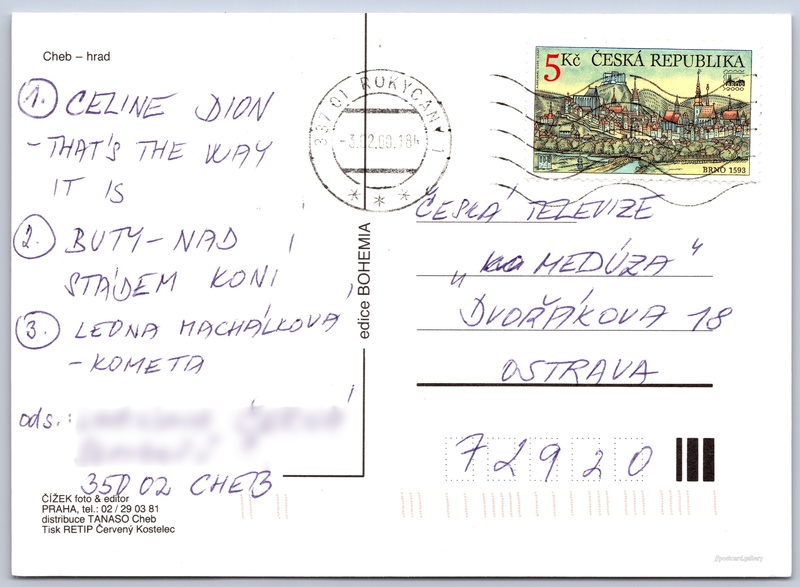 Cheb – hrad
1. CELINE DION
- THAT'S THE WAY
IT IS
2. BUTY - NAD
STÁDEM KONÍ
3. LEONA MACHÁLKOVÁ
- KOMETA
ods.:
350 02 CHEB
ČÍŽEK foto & editor
PRAHA, tel.: 02 / 29 03 81
distribuce TANASO Cheb
Tisk RETIP Červený Kostelec
edice BOHEMIA
337 01 ROKYCANY 1
-3.02.00.18
5 Kč ČESKÁ REPUBLIKA
BRNO 2000
BRNO 1593
ČESKÁ TELEVIZE
„MEDÚZA“
DVOŘÁKOVA 18
OSTRAVA
72920
postcard.gallery